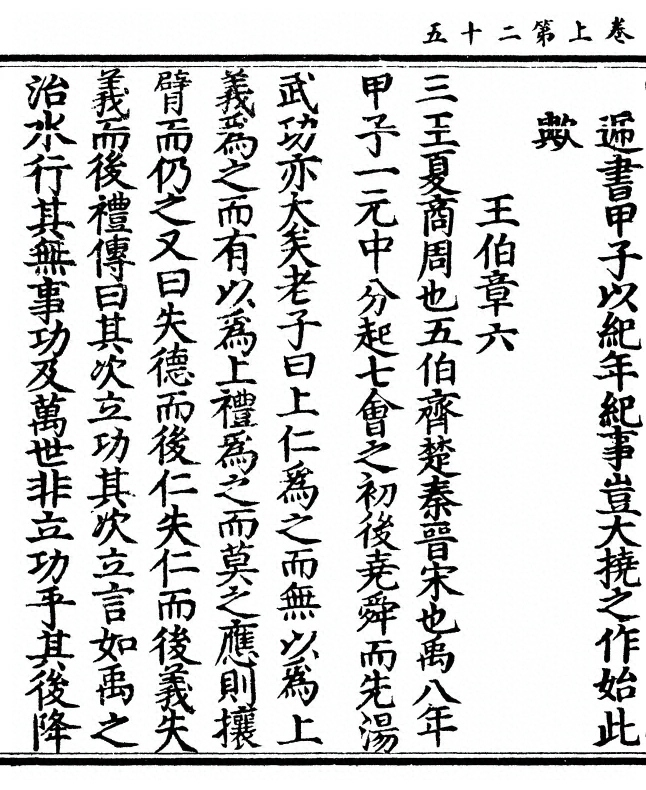 卷上第二十五
遁書甲子以紀年紀事豈大撓之作始此
歟
王伯章六
三王夏商周也五伯齊楚秦晉宋也禹八年
甲子一元中分起七會之初後堯舜而先湯
武功亦大矣老子曰上仁為之而無以為上
義為之而有以為上禮為之而莫之應則攘
臂而仍之又曰失德而後仁失仁而後義失
義而後禮傳曰其次立功其次立言如禹之
治水行其無事功及萬世非立功乎其後降